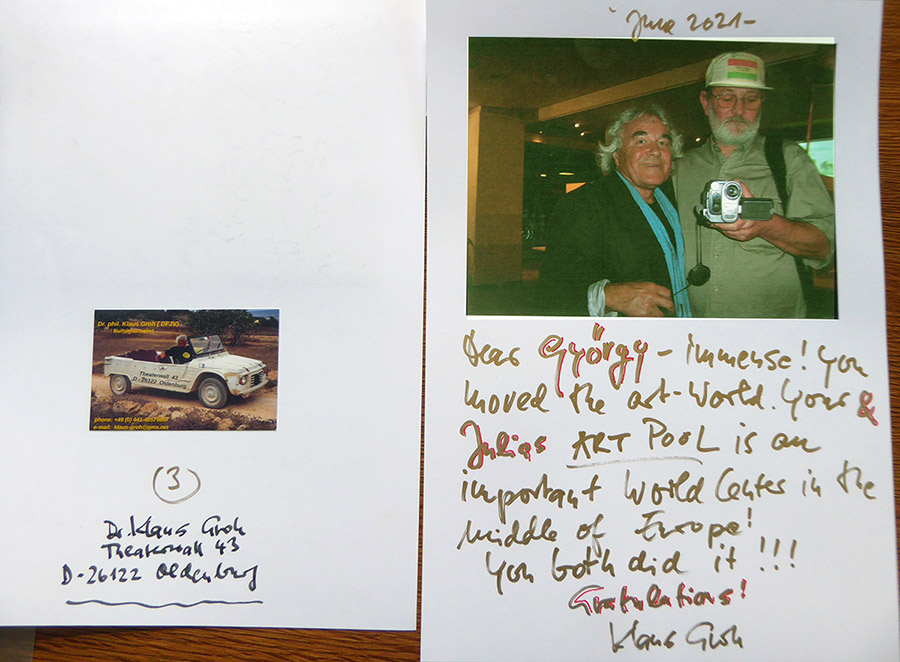 Dr. phil. Klaus Groh ( DFJV)
Kulturjournalist
Theaterwall 43
D - 26122 Oldenburg
e-mail: klaus-groh@gmx.net
(3)
Dr. Klaus Groh
Theaterwall 43
D-26122 Oldenburg
June 2021-
Dear György - immense! You
moved the art-World. Your &
Julias ART POOL is an
important World Center in the
middle of Europe!
You both did it !!!
Gratulations!
Klaus Groh